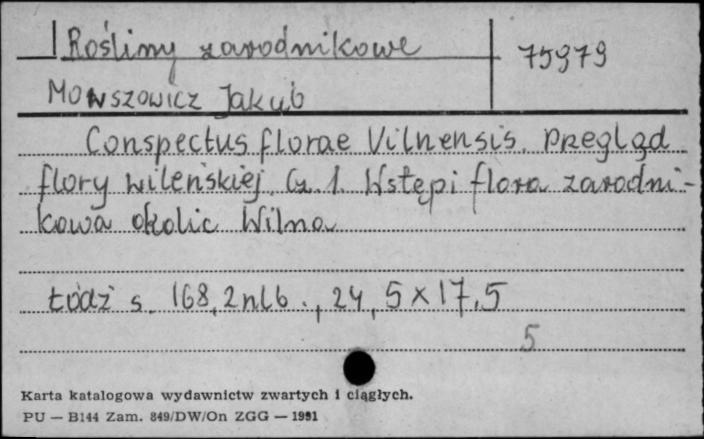 Rośliny zarodnikowe
75979
Mowszowicz Jakub
Conspectus florae Vilnensis. Przegląd
flory wileńskiej. Cz. 1. Wstęp i flora zarodni-
kowa okolic Wilna
Łódź s. 168, 2 nlb., 24,5 x 17,5
5
Karta katalogowa wydawnictw zwartych i ciągłych.
PU — B144 Zam. 849/DW/On ZGG — 1991